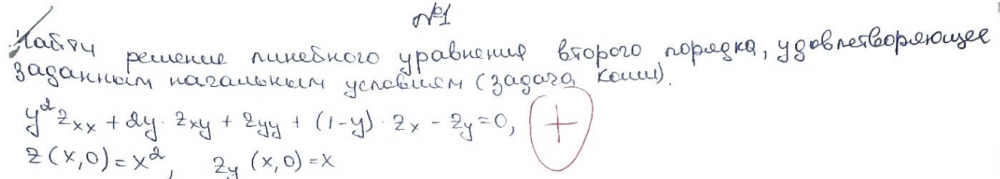 №1
Найти решение линейного уравнения второго порядка, удовлетворяющее
заданным начальным условиям (задача Коши).
y² z_xx + 2y · z_xy + z_yy + (1-y) · z_x - z_y = 0, +
z(x,0) = x², z_y (x,0) = x